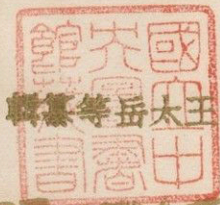 國立中
央圖書
館藏書
王太岳等纂輯